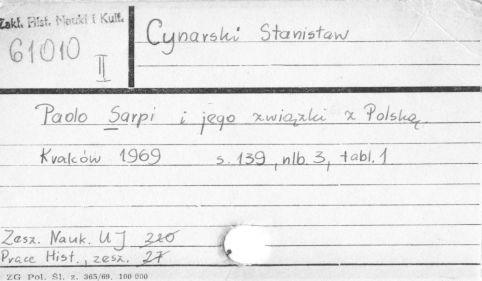 Zakł. Hist. Nauki i Kult.
61010
II
Cynarski Stanisław
Paolo Sarpi i jego związki z Polską.
Kraków 1969 s. 139, nlb. 3, tabl. 1
Zesz. Nauk. UJ 210
Prace Hist., zesz. 27
ZG Pol. Śl. z. 365/69, 100 000